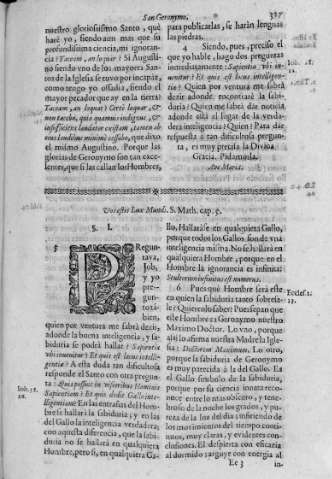 San Geronymo. 327
nuestro gloriosissimo Santo, què
harè yo, siendo aun mas que su
profundissima ciencia, mi ignoran-
cia? Taceam, an loquar? Si Agusti-
no siendo vno de los mayores San-
tos de la Iglesia se tuvo por incapàz,
como tengo yo ossadia, siendo el
mayor pecador que ay en la tierra?
Taceam, an loquar? Certè loquar, &
non tacebo, quia quamvis indignus, &
insufficiens laudator existam, tamen ab
eius laudibus minimè cessabo, que dixo
el mismo Augustino. Porque las
glorias de Geronymo son tan exce-
lentes, que si las callan los Hombres,
para publicarlas, se haràn lenguas
las piedras.
4 Siendo, pues, preciso el
que yo hable, hago dos preguntas
inmediatamente. Sapientia vbi in-
venitur? Et quis est locus intelligen-
tiæ? Quien por ventura me sabrà
dezir adonde encontrarè la sabi-
duria? Quien me sabrà dàr noticia
adonde està el lugar de la verda-
dera inteligencia? Quien? Para dàr
respuesta à tan dificultosa pregun-
ta, es muy precisa la Divina
Gracia. Pidamosla.
Ave Maria.
Vos estis Lux Mundi. S. Math. cap. 5.
§. I.
5 PRegun-
tava,
Job,
y yo
pre-
gun-
tarè
tãbien,
quien por ventura me sabrà dezir,
adonde la buena inteligencia, y sa-
biduria se podrà hallar? Sapientia
vbi invenitur? Et quis est locus intelli-
gentiæ? A esta duda tan dificultosa
responde el Santo con otra pregun-
ta: Quis posuit in visceribus Hominis
Sapientiam? Et quis dedit Gallo inte-
lligentiam? En las entrañas del Hom-
bre se hallarà la Sabiduria; y en las
del Gallo la inteligencia verdadera;
con aquesta diferencia, que la sabi-
duria no se hallarà en qualquiera
Hombre, pero sì, en qualquiera Ga-
llo. Hallaràse en qualquiera Gallo,
porque todos los Gallos son de vna
inteligencia misma. No se hallarà en
qualquiera Hombre, porque en el
Hombre la ignorancia es infinita:
Stultorum infinitus est numerus.
6 Pues què Hombre serà este
en quien la sabiduria tanto sobresa-
le? Quiereslo saber? Pues sepan que
este Hombre es Geronymo nuestro
Maximo Doctor. Lo vno, porque
assi lo afirma nuestra Madre la Igle-
sia: Doctorem Maximum. Lo otro,
porque la sabiduria de Geronymo
es muy parecida à la del Gallo. Es
el Gallo simbolo de la sabiduria,
porque por su ciencia innata recono-
ce entre lo mas obscuro, y tene-
broso de la noche los grados, y pun-
tos de la luz del dia; infiriendo de
los movimientos del tiempo conti-
nuos, muy claras, y evidentes con-
clusiones. El despertar con eficacia
al dormido: sacudir con energia al
Ee 3 in-
Iob. 28.
Eccles. 1.
15.